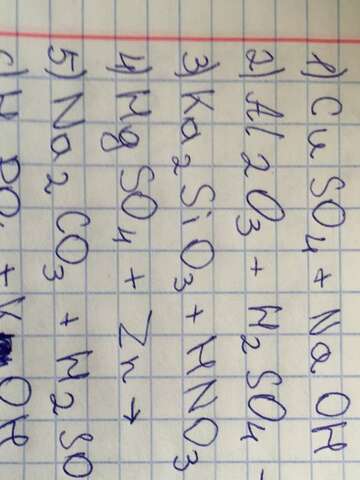 1) CuSO4 + NaOH
2) Al2O3 + H2SO4 -
3) Ka2SiO3 + HNO3
4) HgSO4 + Zn →
5) Na2CO3 + H2SO